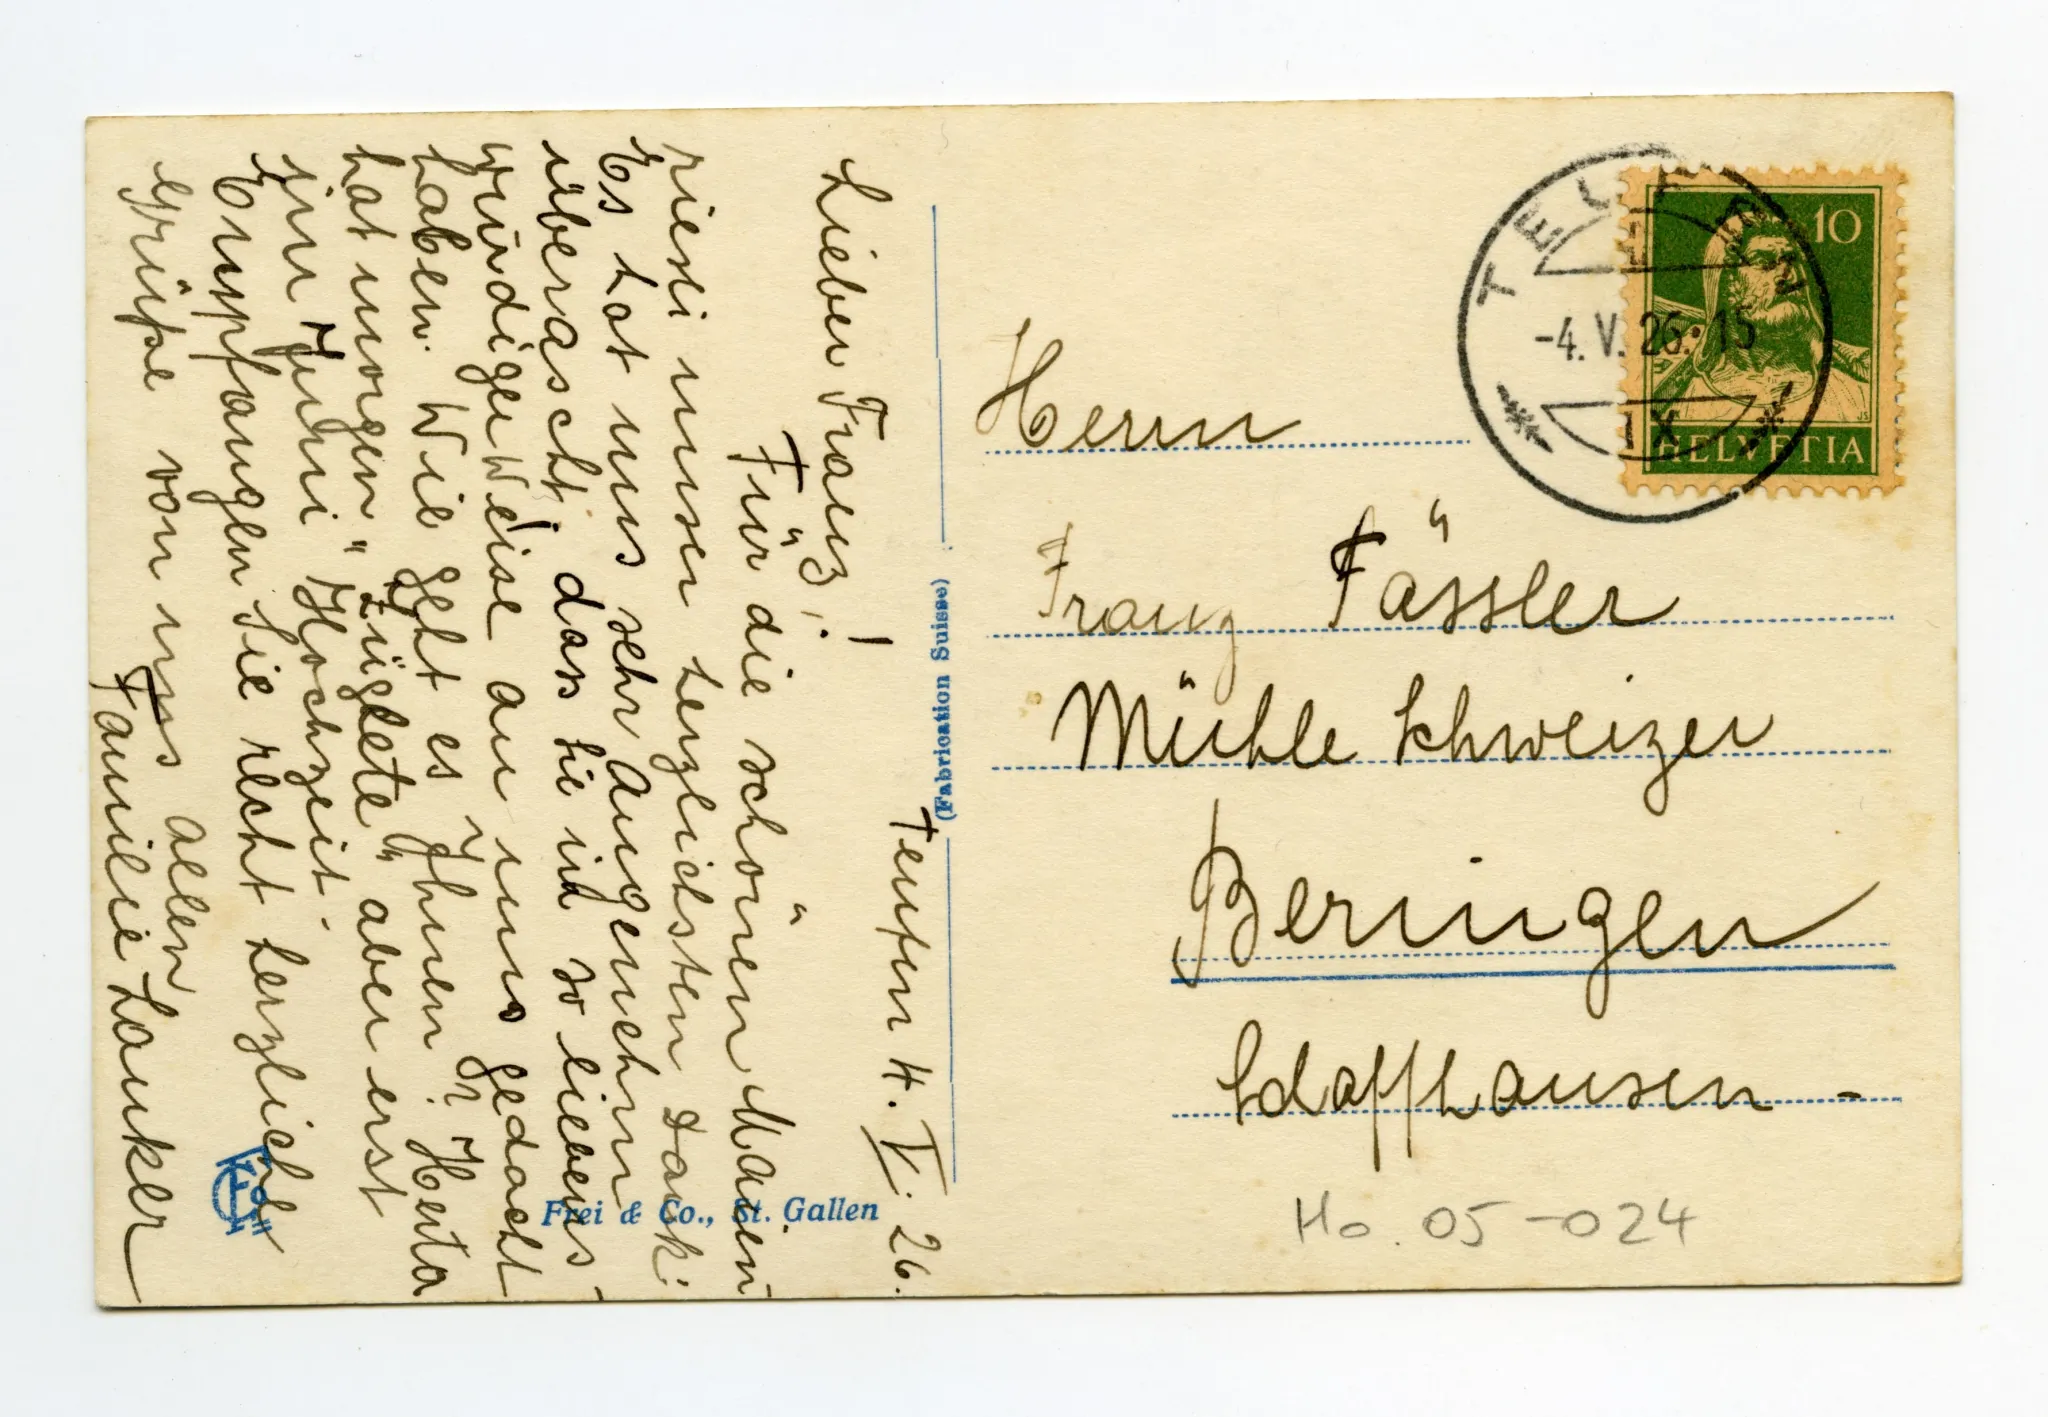 Teufen 4. V. 26.
Lieber Franz!
Für die schönen Maien
riesli unser herzlichsten Dank.
Es hat uns sehr angenehm
überascht, dass Sie in so liebens-
würdiger Weise an uns gedacht
haben. Wie geht es Ihnen? Herta
hat morgen "Züglete", aber erst
im Juni Hochzeit.
Empfangen Sie recht herzliche
Grüsse von uns allen
Familie Lanker
(Fabrication Suisse)
Frei & Co., St. Gallen
TEUFEN
-4. V. 26. 15
IX
10
HELVETIA
Herrn
Franz Fässler
Mühle Schweizer
Beringen
Schaffhausen -
Ho. 05-024